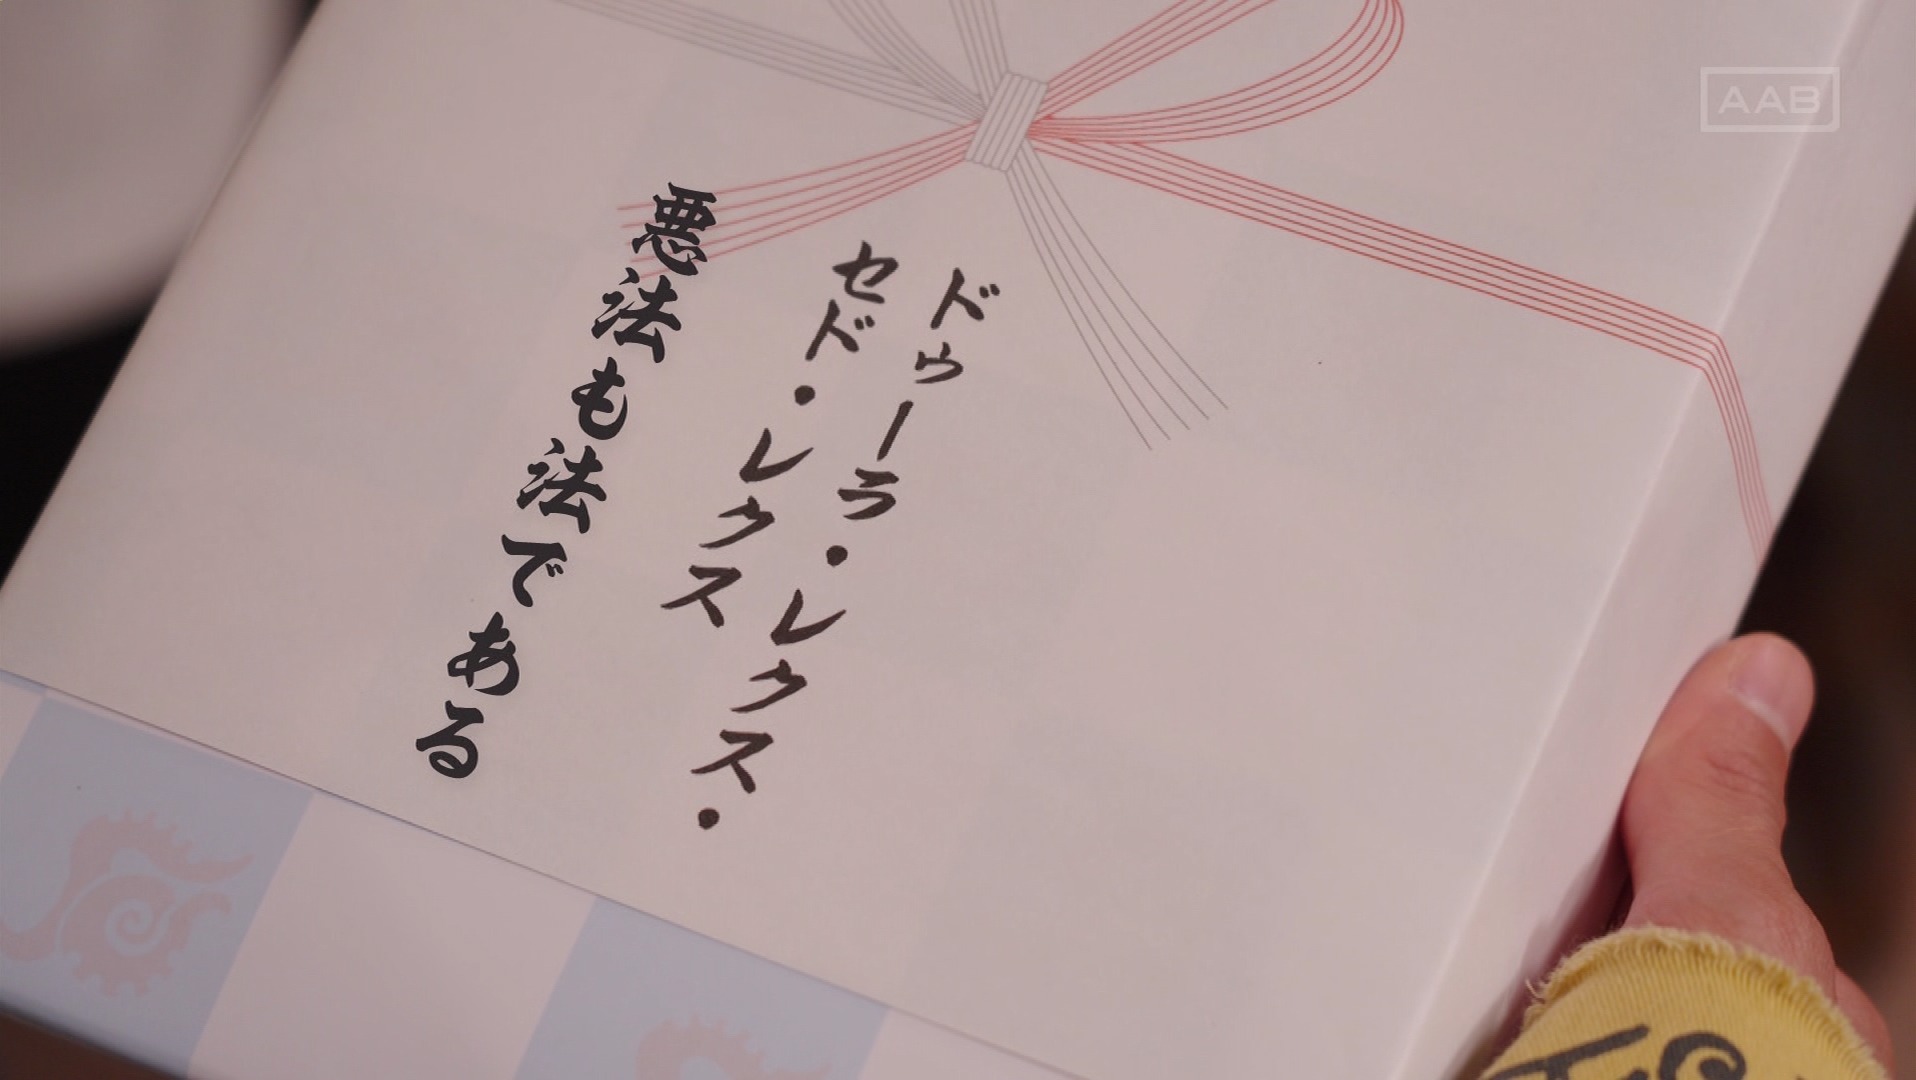 ドゥーラ・レクス・
セド・レクス
悪法も法である
AAB